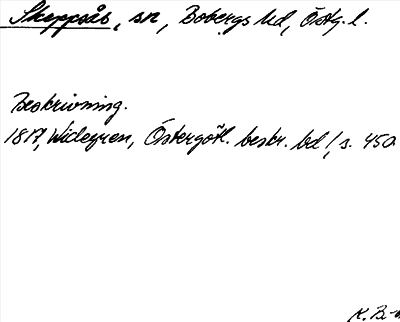 Skeppsås, sn, Bobergs hd, Östg. l.
Beskrivning.
1817, Widegren, Östergötl. beskr. bd 1, s. 450
K.B-n